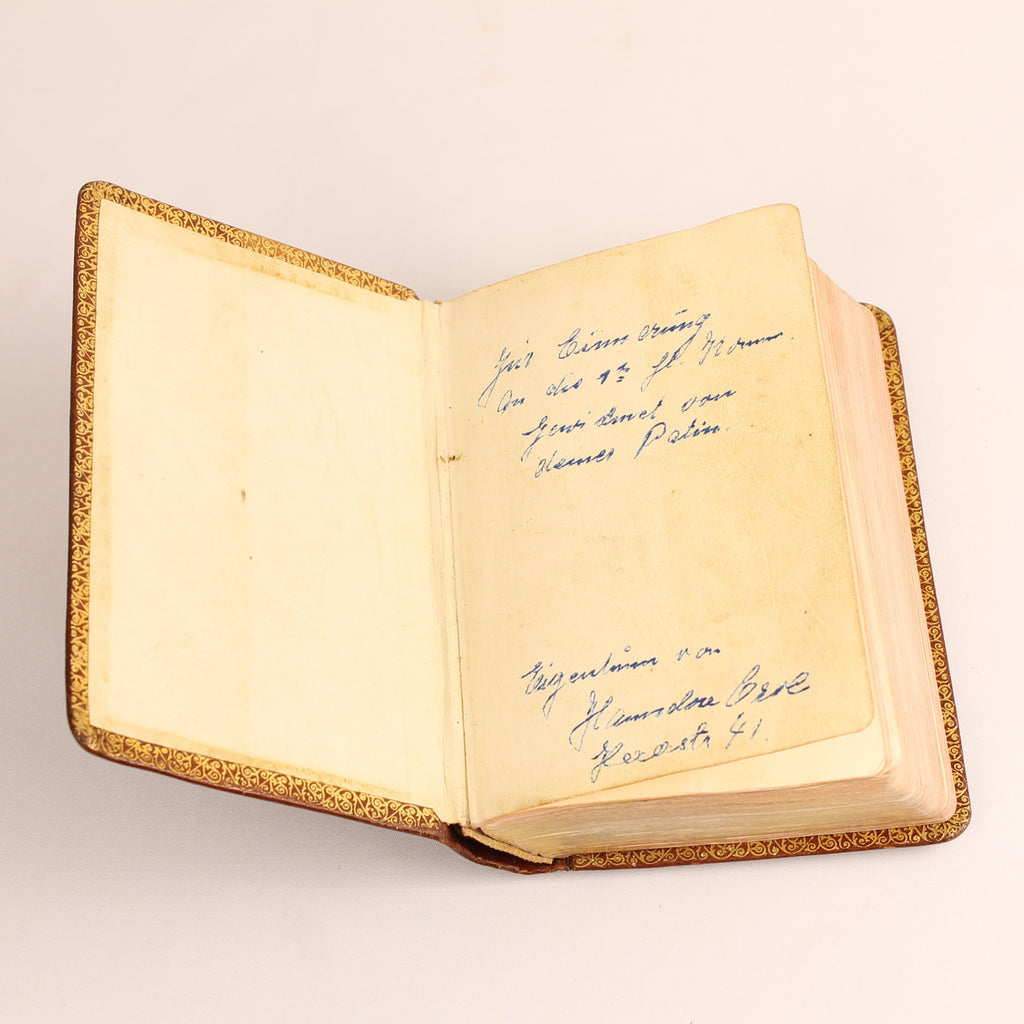 Zur Erinnerung
an die 1te hl. Komm.
gewidmet von
deiner Patin.
Eigentum von
Hannelore
41.